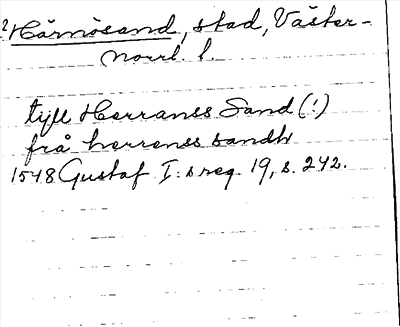 2 Härnösand, stad, Väster-
norrl. l.
tijll Herranss Sand (!)
frå herrenss sandh
1548 Gustaf I:s reg. 19, s. 242.